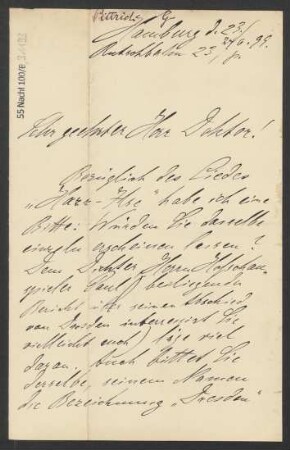 Pittrich, G
Hamburg d. 23./
24/6. 99.
Rutschbahn 23, pr.
55 Nachl 100/B,
Sehr geehrter Herr Doktor!
Bezüglich des Liedes
„Harz-Ilse" habe ich eine
Bitte: Würden Sie dasselbe
einzeln erscheinen lassen?
Dem Dichter Herrn Hofschau-
spieler Paul (beiliegender
Bericht über seinen Abschied
von Dresden interessirt Sie
vielleicht auch) läge viel
daran. Auch bittet Sie
derselbe, seinem Namen
die Bezeichnung „Dresden"